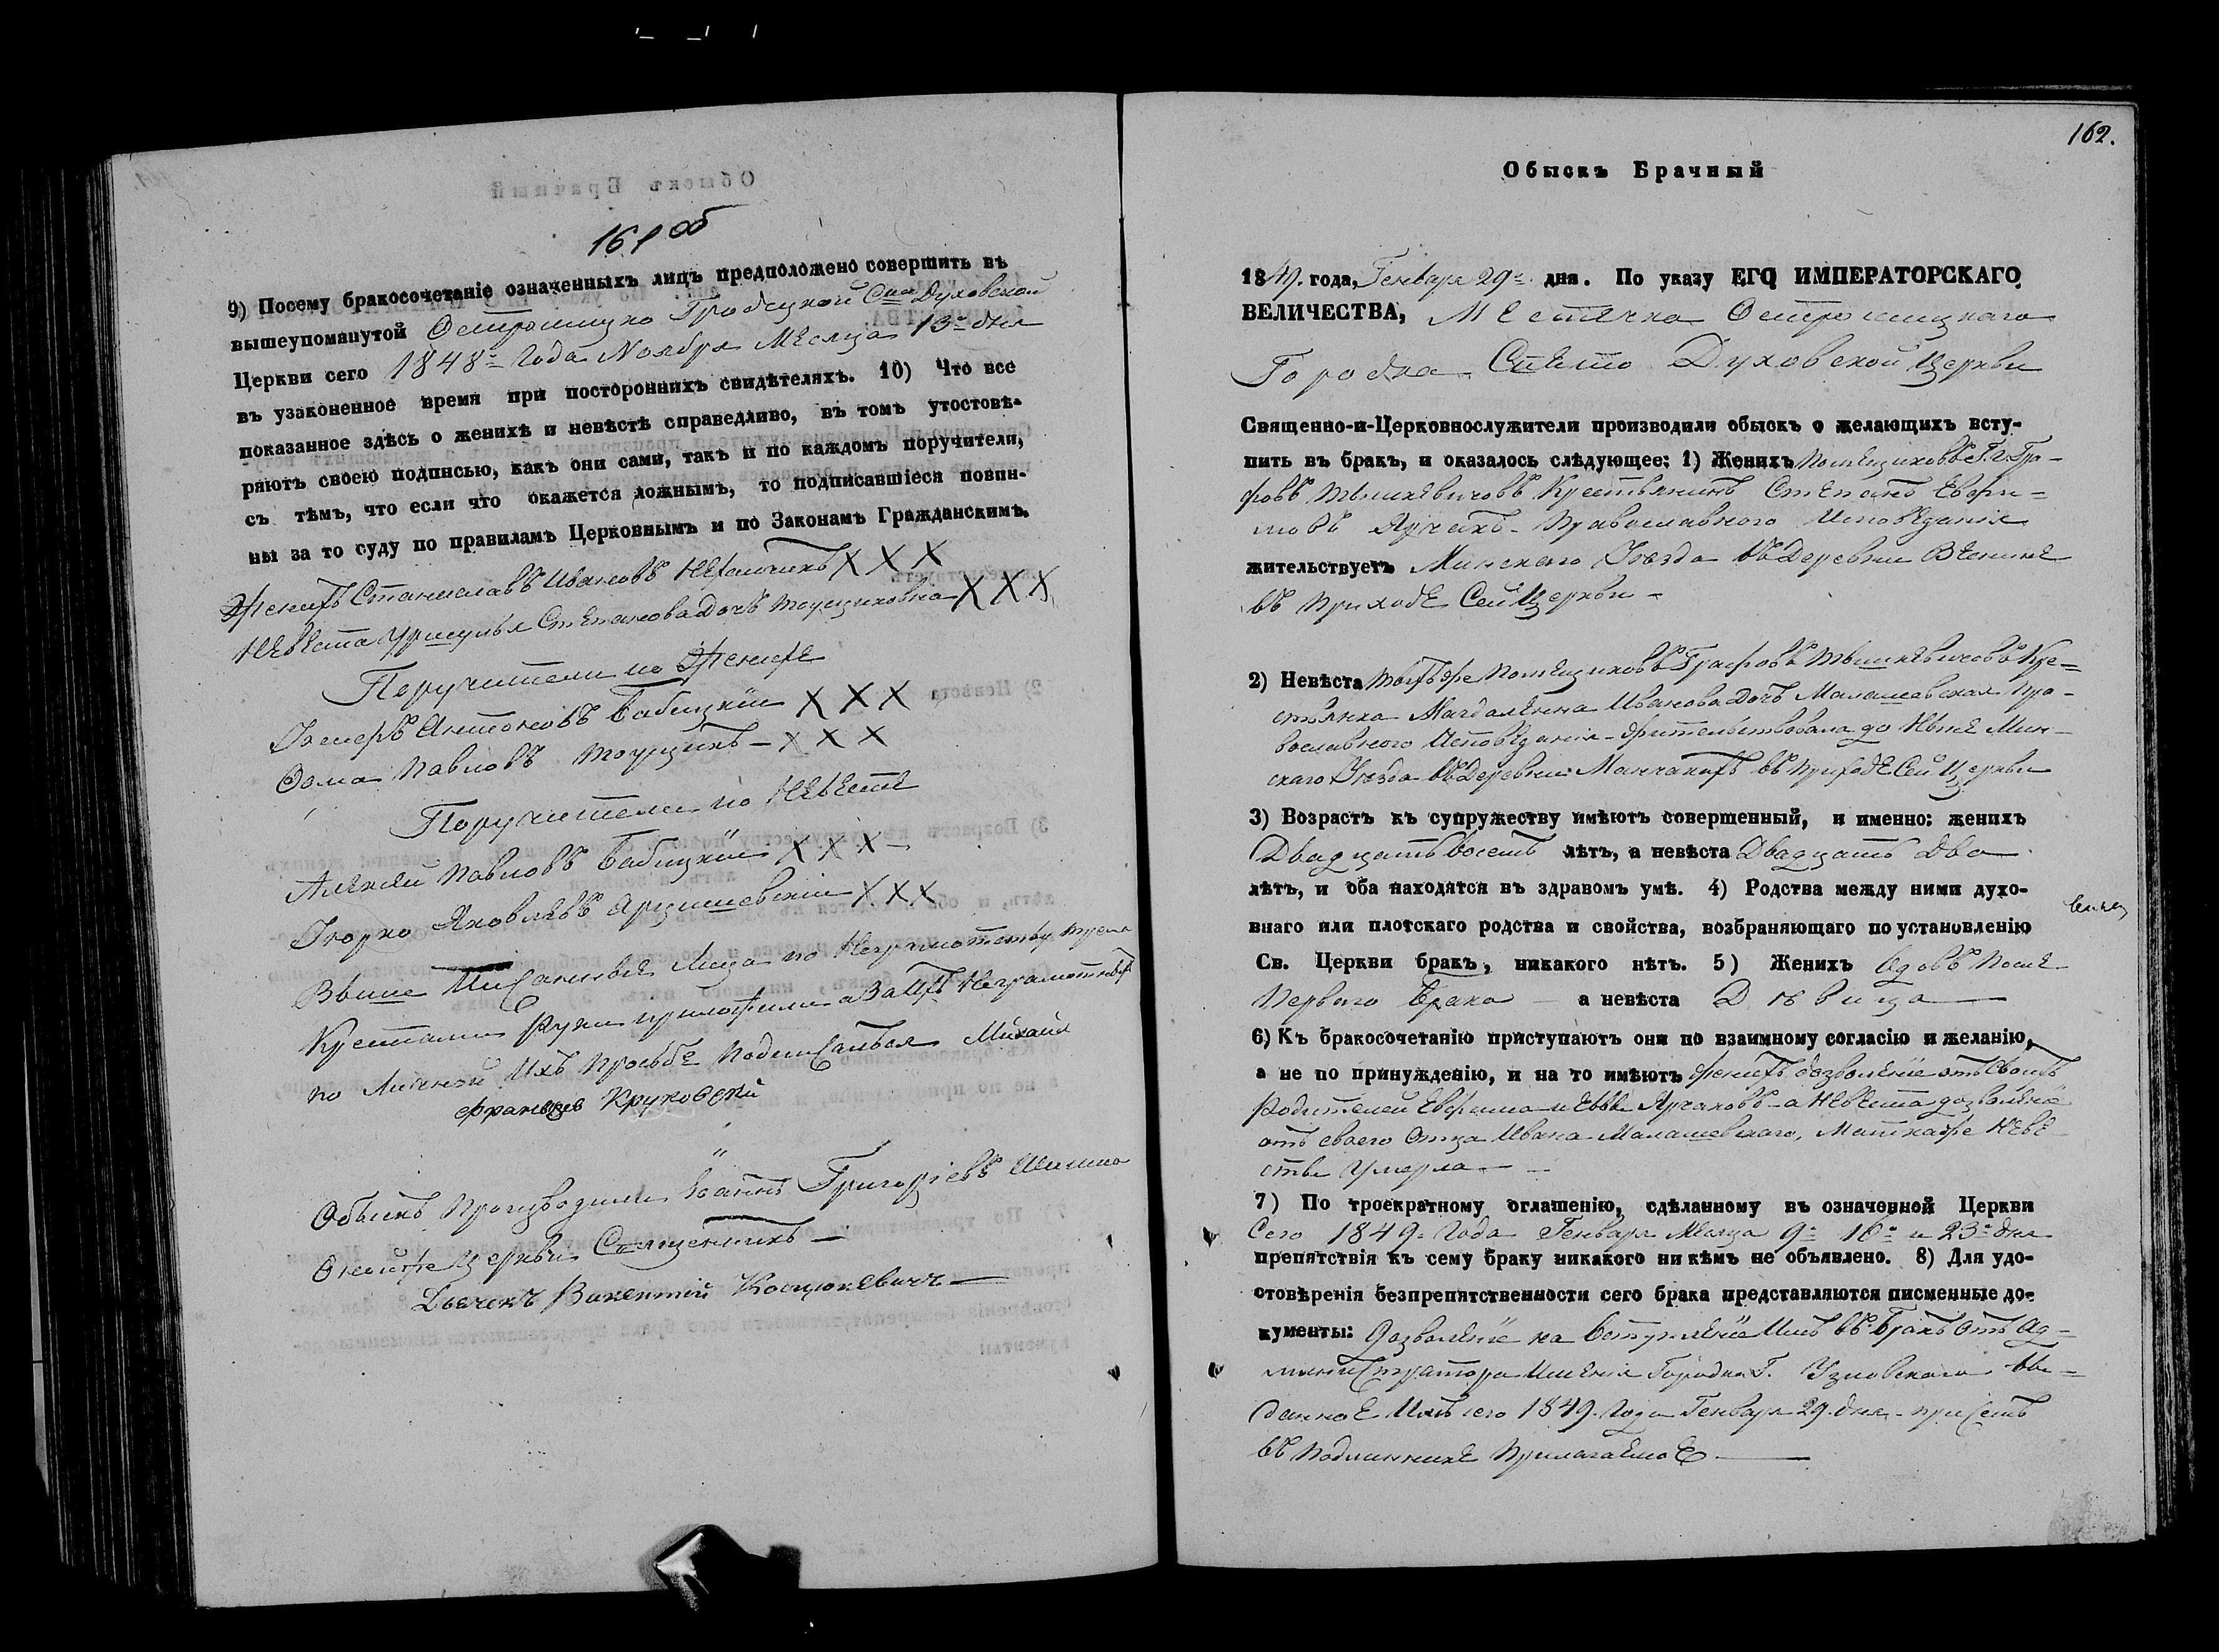 161 об
9) Посему бракосочетаніе означенныхъ лицъ предположено совершить въ
вышеупомянутой Остро­шицко Гродецкой Духовской
Церкви сего 1848 года Ноября Месяца 13 дня
въ узаконенное время при постороннихъ свидѣтеляхъ. 10) Что все
показанное здѣсь о женихѣ и невѣстѣ справедливо, въ томъ утостовѣ-
ряютъ своею подписью, какъ они сами, такъ и по каждомъ поручители,
съ тѣмъ, что если что окажется ложнымъ, то подписавшіеся повин-
ны за то суду по правиламъ Церковнымъ и по Законамъ Гражданскимъ.
Женихъ Станиславъ Ивановъ X X X
Невеста Степанова Дочь X X X
Поручители по Женихе
Антоновъ Бабицкій X X X
Фома Павловъ X X X
Поручители по Невесте
Алексей Павловъ Бабицкій X X X
Яковлевъ X X X
Выше Писанные Лица по Неграмотству тремя
Крестами Руки приложили а За ихъ Неграмотныхъ
по Личной Ихъ Просьбе Подписался Михаил
Францов Круковский
Обыскъ Производили Іоаннъ Григоріевъ
Онойже Церкви Священникъ
Дьячекъ Викентій Костюкевичъ
162.
Обыскъ Брачный
1849. года, Генваря 29 дня. По указу ЕГО ИМПЕРАТОРСКАГО
ВЕЛИЧЕСТВА, Местечка Острошицкаго
Городка Свято Духовской Церкви
Священно-и-Церковнослужители производили обыскъ о желающихъ всту-
пить въ бракъ, и оказалось слѣдующее: 1) Женихъ Помещиковъ Г. Г. Гра-
фовъ Тышкевичовъ Крестьянинъ Степанъ Ефри-
мовъ Ярчакъ Православного Исповеданія
жительствуетъ Минскаго Уезда въ Деревни
въ Приходе Сей Церкви
2) Невѣста техъже Помещиковъ Графовъ Тышкевичовъ Кре-
стьянка Магдаленна Иванова Дочь Малашевская Пра-
вославного Исповеданія Жительствовала до Ныне Мин-
скаго Уезда въ Деревни въ Приходе Сей Церкви
3) Возрастъ къ супружеству имѣютъ совершенный, и именно: женихъ
Двадцать восемь лѣтъ, а невѣста Двадцать Два
лѣтъ, и оба находятся въ здравомъ умѣ. 4) Родства между ними духо-
внаго или плотскаго родства и свойства, возбраняющаго по установленію
Св. Церкви бракъ, никакого нѣтъ. 5) Женихъ Вдовъ После
Первого Брака а невѣста Девица
6) Къ бракосочетанію приступаютъ они по взаимному согласію и желанію,
а не по принужденію, и на то имѣютъ Женихъ дозволеніе отъ Своихъ
Родителей Ефрима и Евы Ярчаковъ а Невеста дозволеніе
отъ своего Отца Ивана Малашевскаго, Матка же Неве
сты Умерла
7) По троекратному оглашенію, сдѣланному въ означенной Церкви
Сего 1849 Года Генваря Месяца 9 16 и 23 дня
препятствія къ сему браку никакого ни кѣмъ не объявлено. 8) Для удо-
стовѣренія безпрепятственности сего брака представляются писменные до-
кументы: Дозволеніе на Вступленіе Имъ въ Бракъ Отъ Ад-
министратора Именія Городка Г. Узловскаго вы-
данное Имъ сего 1849 Года Генваря 29 дня при семъ
въ Подлиннике Прилагаемое